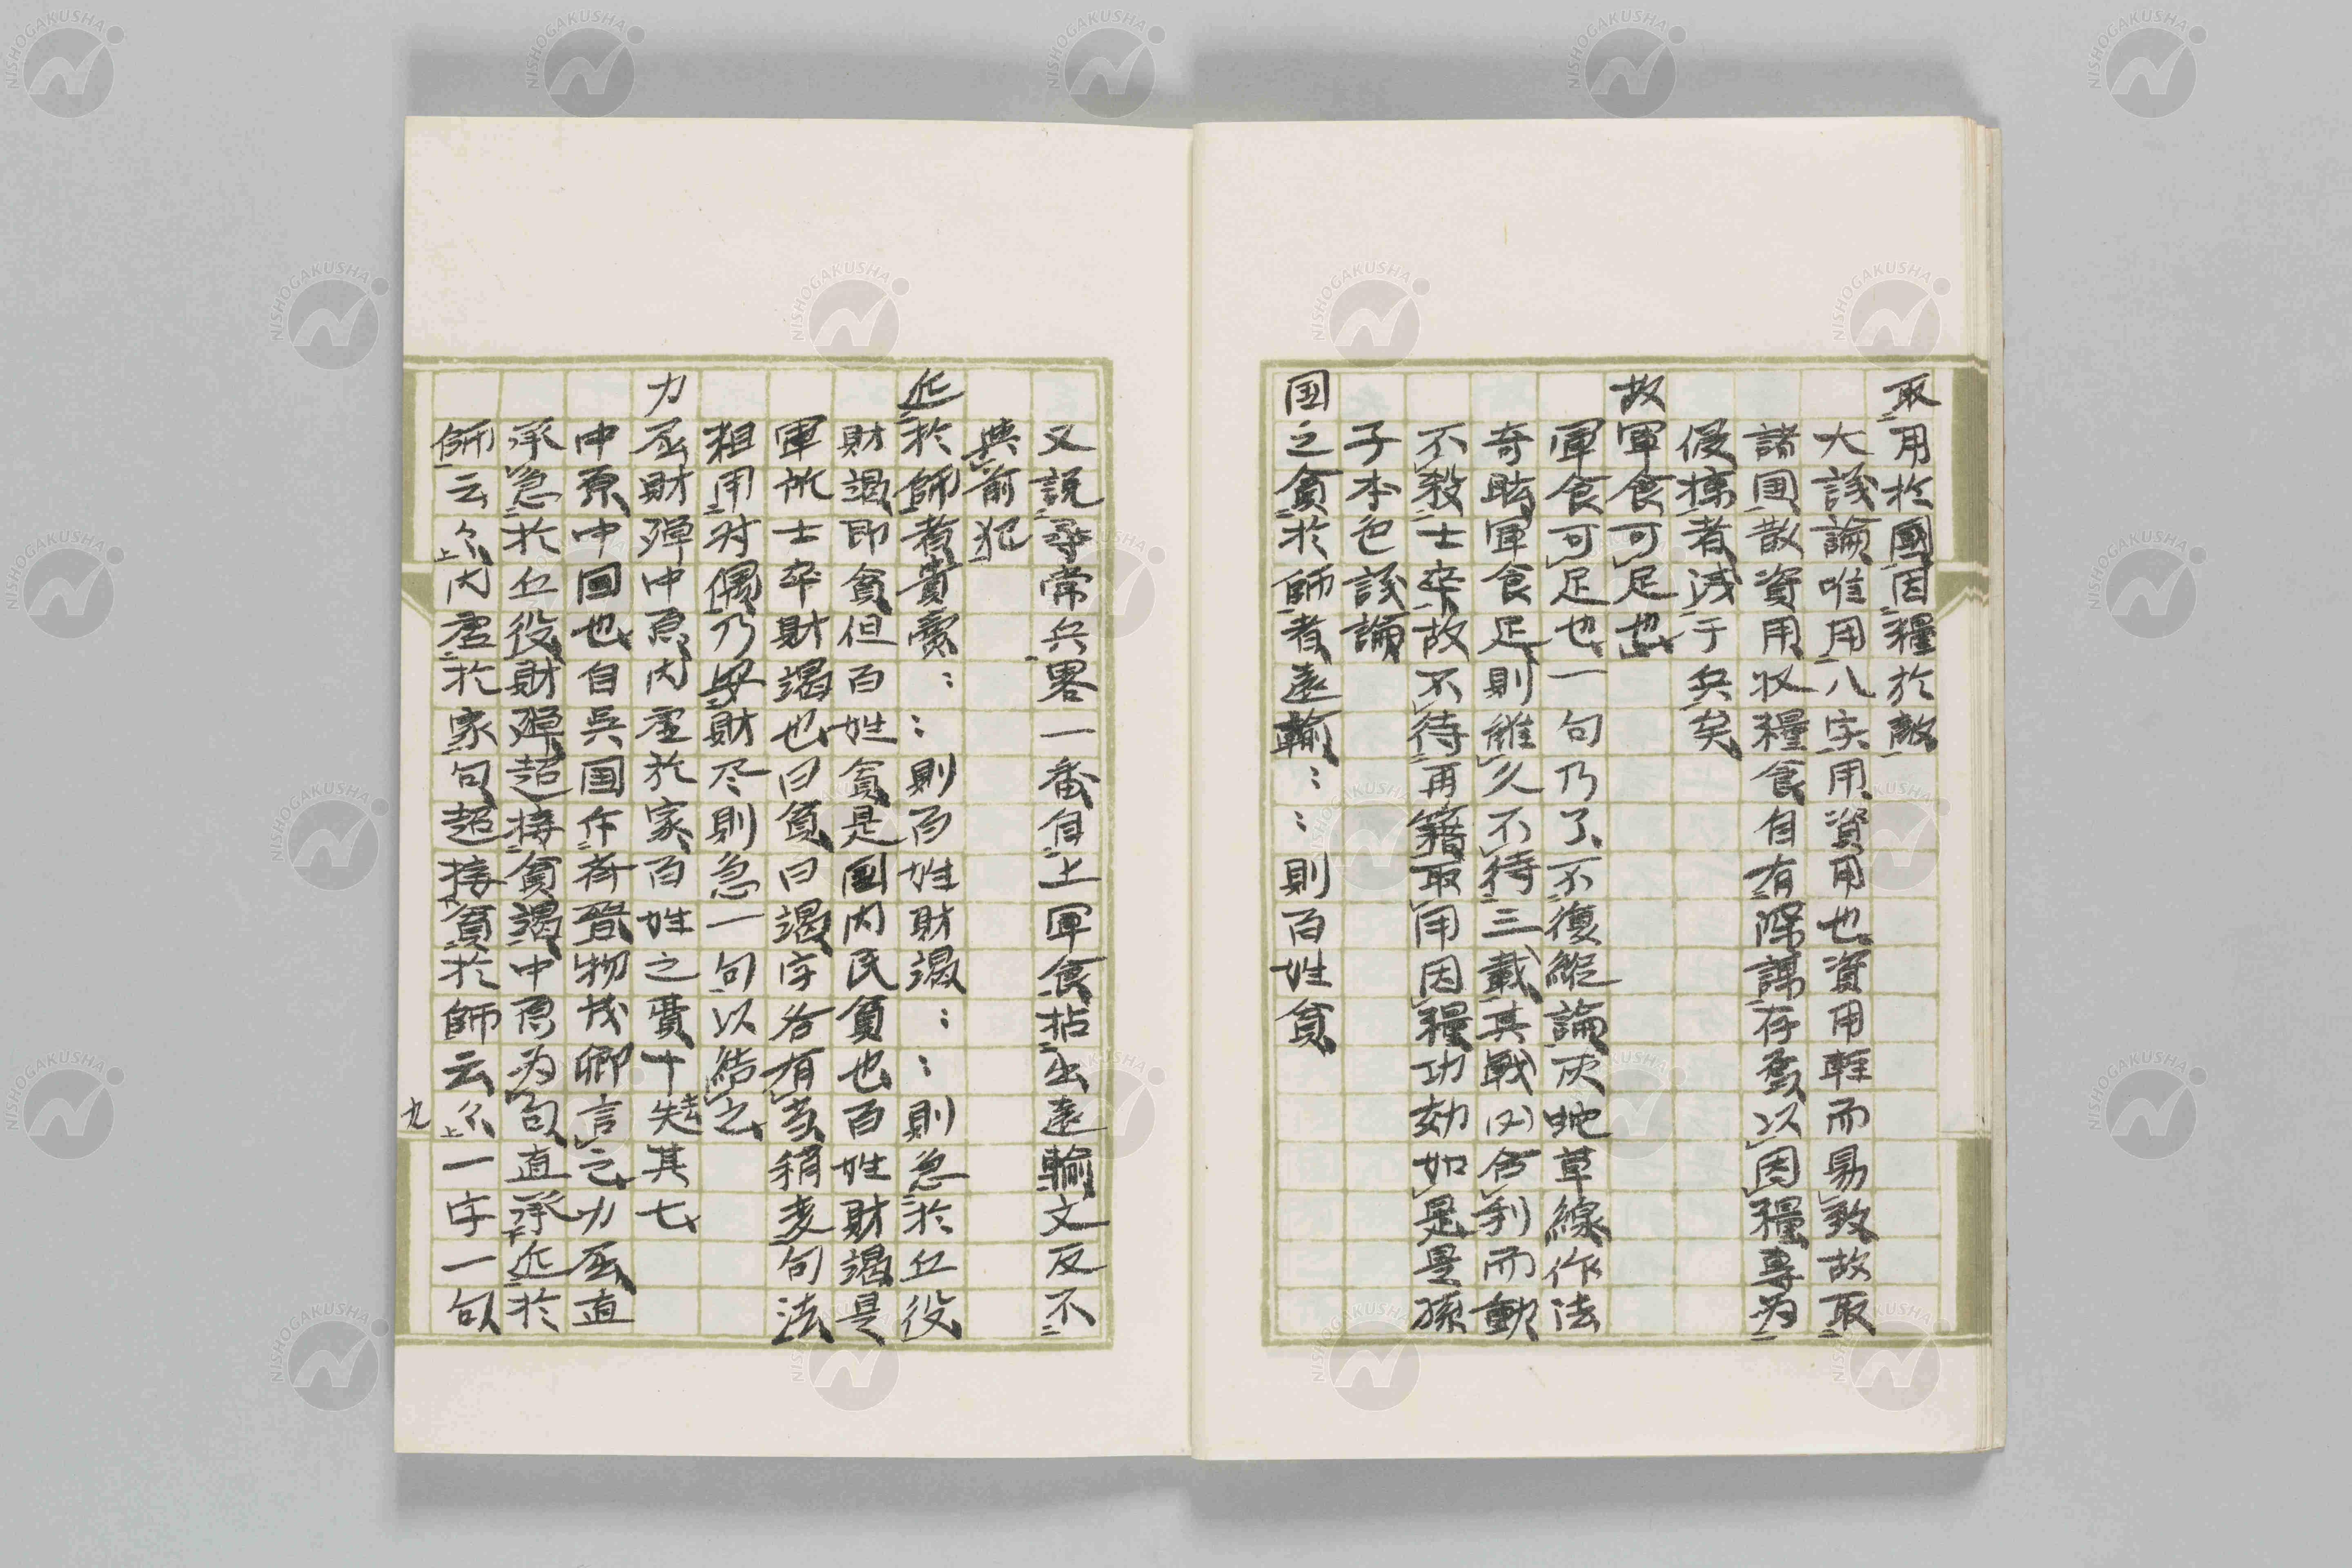 取用於國因糧於敵
大議論唯用八字用資用也資用輕而易致故取
諸国散資用收糧食自有際謀存焉以因糧專為
侵掠者浅于兵矣
故軍食可足也
軍食可足也一句乃了不復縱論灰蛇草線作法
奇眩軍食足則雖久不待三載其戰必合利而動
不殺士卒故不待再籍取用因糧功効如是是孫
子本色議論
国之貧於師者遠輸〻〻則百姓貧
又説尋常兵畧一番自上軍食拈出遠輸文反不
與前犯
近於師者貴賣〻〻則百姓財竭〻〻則急於丘役
財竭即貧但百姓貧是国内民貧也百姓財竭是
軍所士卒財竭也曰貧曰竭字各有着稍麦句法
粗用対偶乃安財尽則急一句以結之
力屈財殫中原内虚於家百姓之費十去其七
中原中国也自呉国作斉晋物茂卿言之力屈直
承急於丘役財殫超接貧竭中原為句直承近於
師云尓内虚於家句超接貧於師云尓一字一句
九
NISHOGAKUSHA